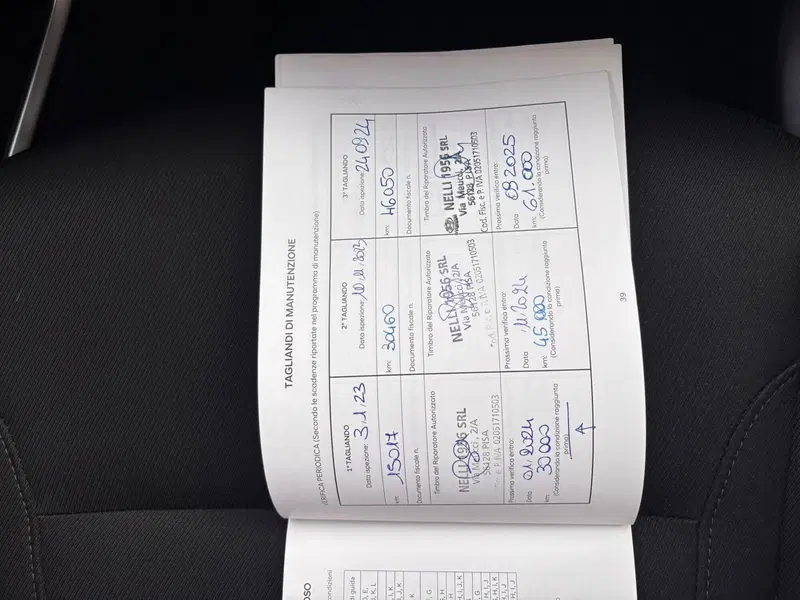 TAGLIANDI DI MANUTENZIONE
VERIFICA PERIODICA (Secondo le scadenze riportate nel programma di manutenzione)
1° TAGLIANDO
Data ispezione: 3.1.23
km: 15017
Documento fiscale n.
Timbro del Riparatore Autorizzato
NELLI 1956 SRL
Via Meucci, 2/A
56128 PISA
P. IVA 02051710503
Prossima verifica entro:
Data 01/2024
km 30000
(Considerando la condizione raggiunta
prima)
2° TAGLIANDO
Data ispezione: 10.11.2023
km: 30460
Documento fiscale n.
Timbro del Riparatore Autorizzato
NELLI 1956 SRL
Via Meucci, 2/A
56128 PISA
P. IVA 02051710503
Prossima verifica entro:
Data 11/2024
km: 45.000
(Considerando la condizione raggiunta
prima)
3° TAGLIANDO
Data ispezione: 240924
km: 46050
Documento fiscale n.
Timbro del Riparatore Autorizzato
NELLI 1956 SRL
Via Meucci, 2/A
56128 PISA
Cod. Fisc. e P. IVA 02051710503
Prossima verifica entro:
Data 09.2025
km: 61.000
(Considerando la condizione raggiunta
prima)
39
OSO
condizioni
di guida